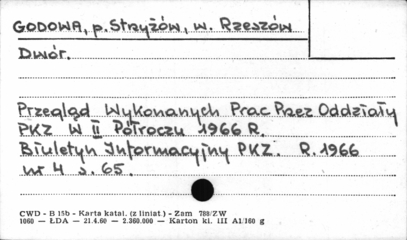 GODOWA, p. Stryżów, w. Rzeszów
Dwór.
Przegląd Wykonanych Prac Przez Oddziały
PKZ W II Półroczu 1966 R.
Biuletyn Informacyjny PKZ. R. 1966
nr 4 s. 65.
CWD - B 15b - Karta katal. (z liniat.) - Zam 788/ZW
1060 — ŁDA — 21.4.60 - 2.360.000 - Karton kl. III A1/160 g